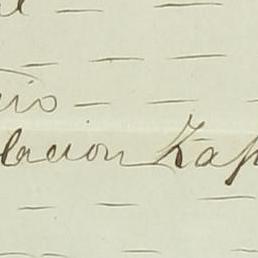 rio
lacion Zap